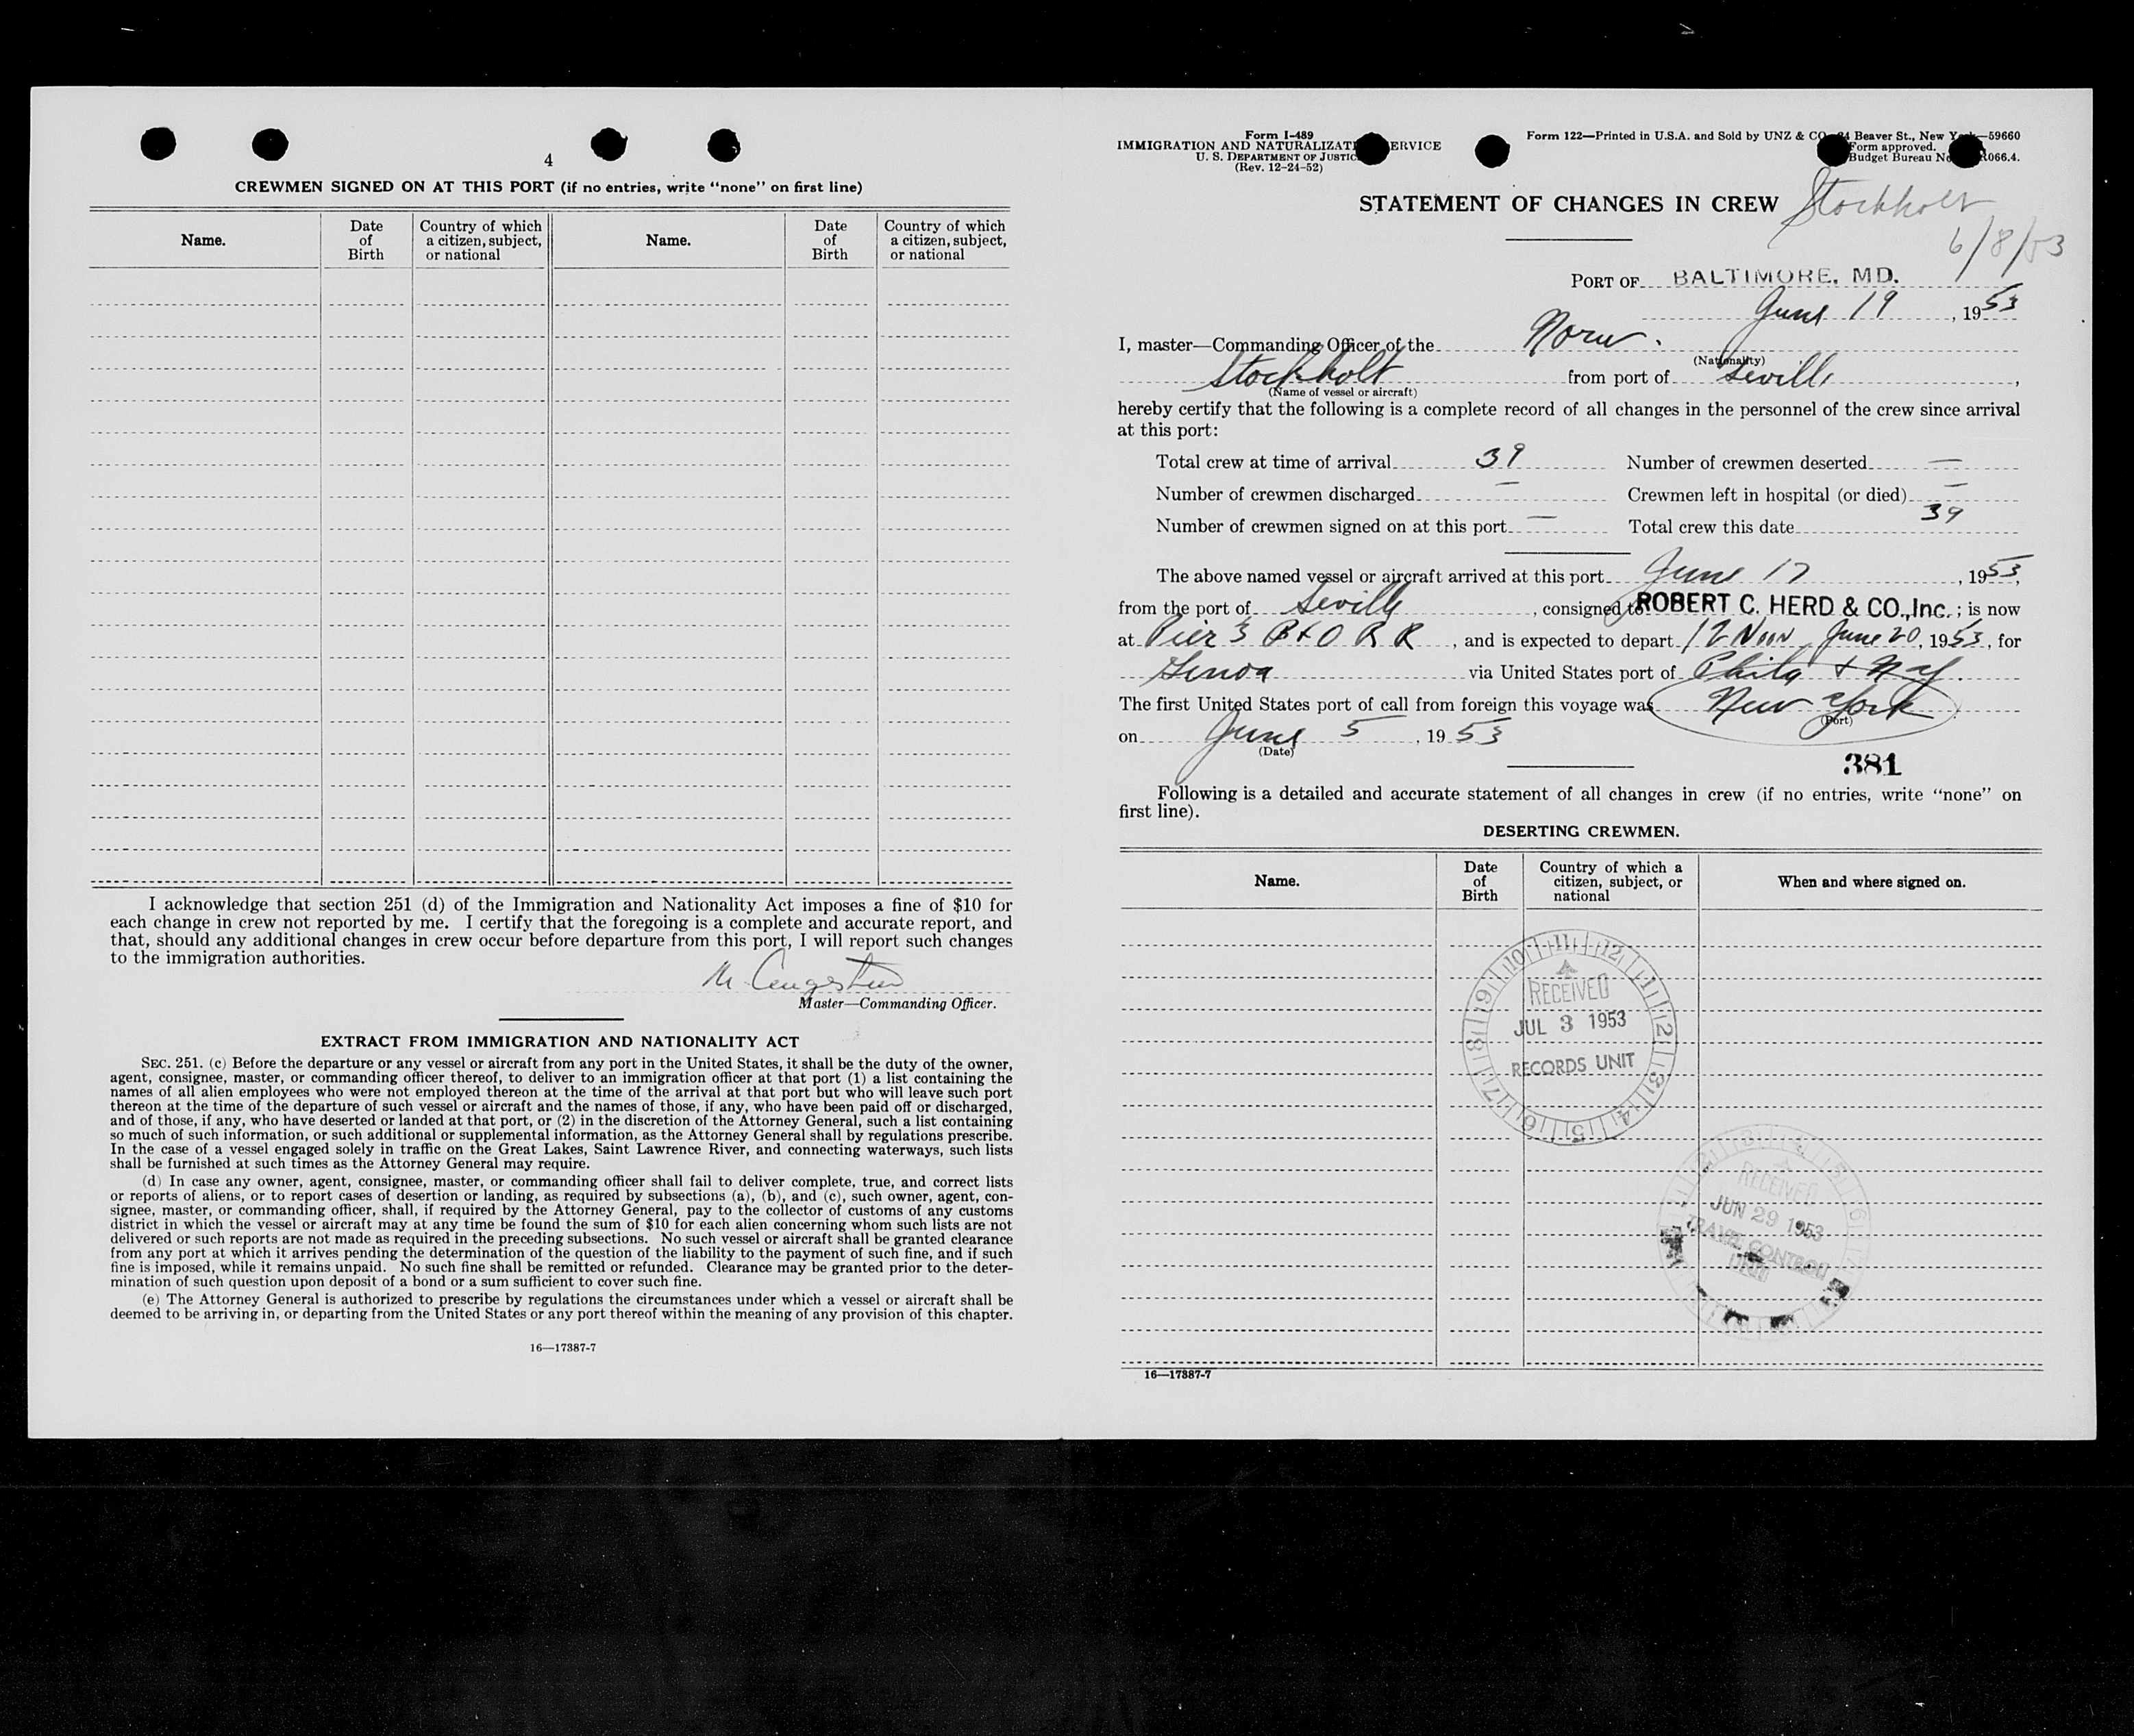 4
CREWMEN SIGNED ON AT THIS PORT (if no entries, write "none" on first line)
Name.
Date of Birth
Country of which a citizen, subject, or national
Name.
Date of Birth
Country of which a citizen, subject, or national
I acknowledge that section 251 (d) of the Immigration and Nationality Act imposes a fine of $10 for
each change in crew not reported by me. I certify that the foregoing is a complete and accurate report, and
that, should any additional changes in crew occur before departure from this port, I will report such changes
to the immigration authorities.
M.
Master—Commanding Officer.
EXTRACT FROM IMMIGRATION AND NATIONALITY ACT
SEC. 251. (c) Before the departure or any vessel or aircraft from any port in the United States, it shall be the duty of the owner,
agent, consignee, master, or commanding officer thereof, to deliver to an immigration officer at that port (1) a list containing the
names of all alien employees who were not employed thereon at the time of the arrival at that port but who will leave such port
thereon at the time of the departure of such vessel or aircraft and the names of those, if any, who have been paid off or discharged,
and of those, if any, who have deserted or landed at that port, or (2) in the discretion of the Attorney General, such a list containing
so much of such information, or such additional or supplemental information, as the Attorney General shall by regulations prescribe.
In the case of a vessel engaged solely in traffic on the Great Lakes, Saint Lawrence River, and connecting waterways, such lists
shall be furnished at such times as the Attorney General may require.
(d) In case any owner, agent, consignee, master, or commanding officer shall fail to deliver complete, true, and correct lists
or reports of aliens, or to report cases of desertion or landing, as required by subsections (a), (b), and (c), such owner, agent, con-
signee, master, or commanding officer, shall, if required by the Attorney General, pay to the collector of customs of any customs
district in which the vessel or aircraft may at any time be found the sum of $10 for each alien concerning whom such lists are not
delivered or such reports are not made as required in the preceding subsections. No such vessel or aircraft shall be granted clearance
from any port at which it arrives pending the determination of the question of the liability to the payment of such fine, and if such
fine is imposed, while it remains unpaid. No such fine shall be remitted or refunded. Clearance may be granted prior to the deter-
mination of such question upon deposit of a bond or a sum sufficient to cover such fine.
(e) The Attorney General is authorized to prescribe by regulations the circumstances under which a vessel or aircraft shall be
deemed to be arriving in, or departing from the United States or any port thereof within the meaning of any provision of this chapter.
16—17387-7
Form I-489
IMMIGRATION AND NATURALIZAT ERVICE
U. S. DEPARTMENT OF JUSTIC
(Rev. 12-24-52)
Form 122—Printed in U.S.A. and Sold by UNZ & CO 24 Beaver St., New Y —59660
Form approved.
Budget Bureau No R066.4.
STATEMENT OF CHANGES IN CREW Stockholt
6/8/53
PORT OF BALTIMORE, MD.
June 19, 1953
I, master—Commanding Officer of the Norw.
(Nationality)
Stockholt from port of Seville,
(Name of vessel or aircraft)
hereby certify that the following is a complete record of all changes in the personnel of the crew since arrival
at this port:
Total crew at time of arrival 39 Number of crewmen deserted —
Number of crewmen discharged — Crewmen left in hospital (or died) —
Number of crewmen signed on at this port — Total crew this date 39
The above named vessel or aircraft arrived at this port June 17, 1953,
from the port of Seville, consigned to ROBERT C. HERD & CO., Inc.; is now
at Pier 3 B & O R R, and is expected to depart 12 Noon June 20, 1953, for
Genoa via United States port of Phila & N Y.
The first United States port of call from foreign this voyage was New York
(Port)
on June 5, 1953
(Date)
381
Following is a detailed and accurate statement of all changes in crew (if no entries, write "none" on
first line).
DESERTING CREWMEN.
Name.
Date of Birth
Country of which a citizen, subject, or national
When and where signed on.
RECEIVED
JUL 3 1953
RECORDS UNIT
RECEIVED
JUN 29 1953
CONTROL
UNIT
16—17387-7